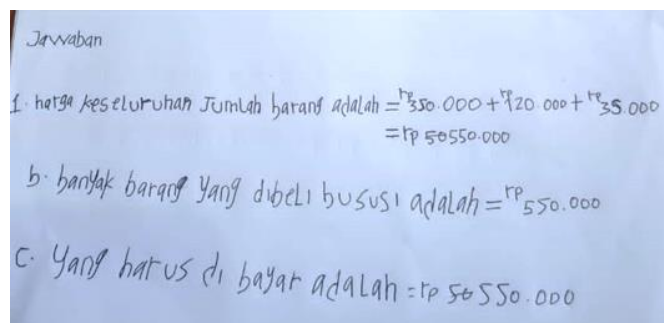 Jawaban
1. harga keseluruhan Jumlah barang adalah = rp350.000 + rp120.000 + rp35.000
= rp 50550.000
b. banyak barang yang dibeli bususi adalah = rp550.000
c. Yang harus di bayar adalah = rp 50550.000